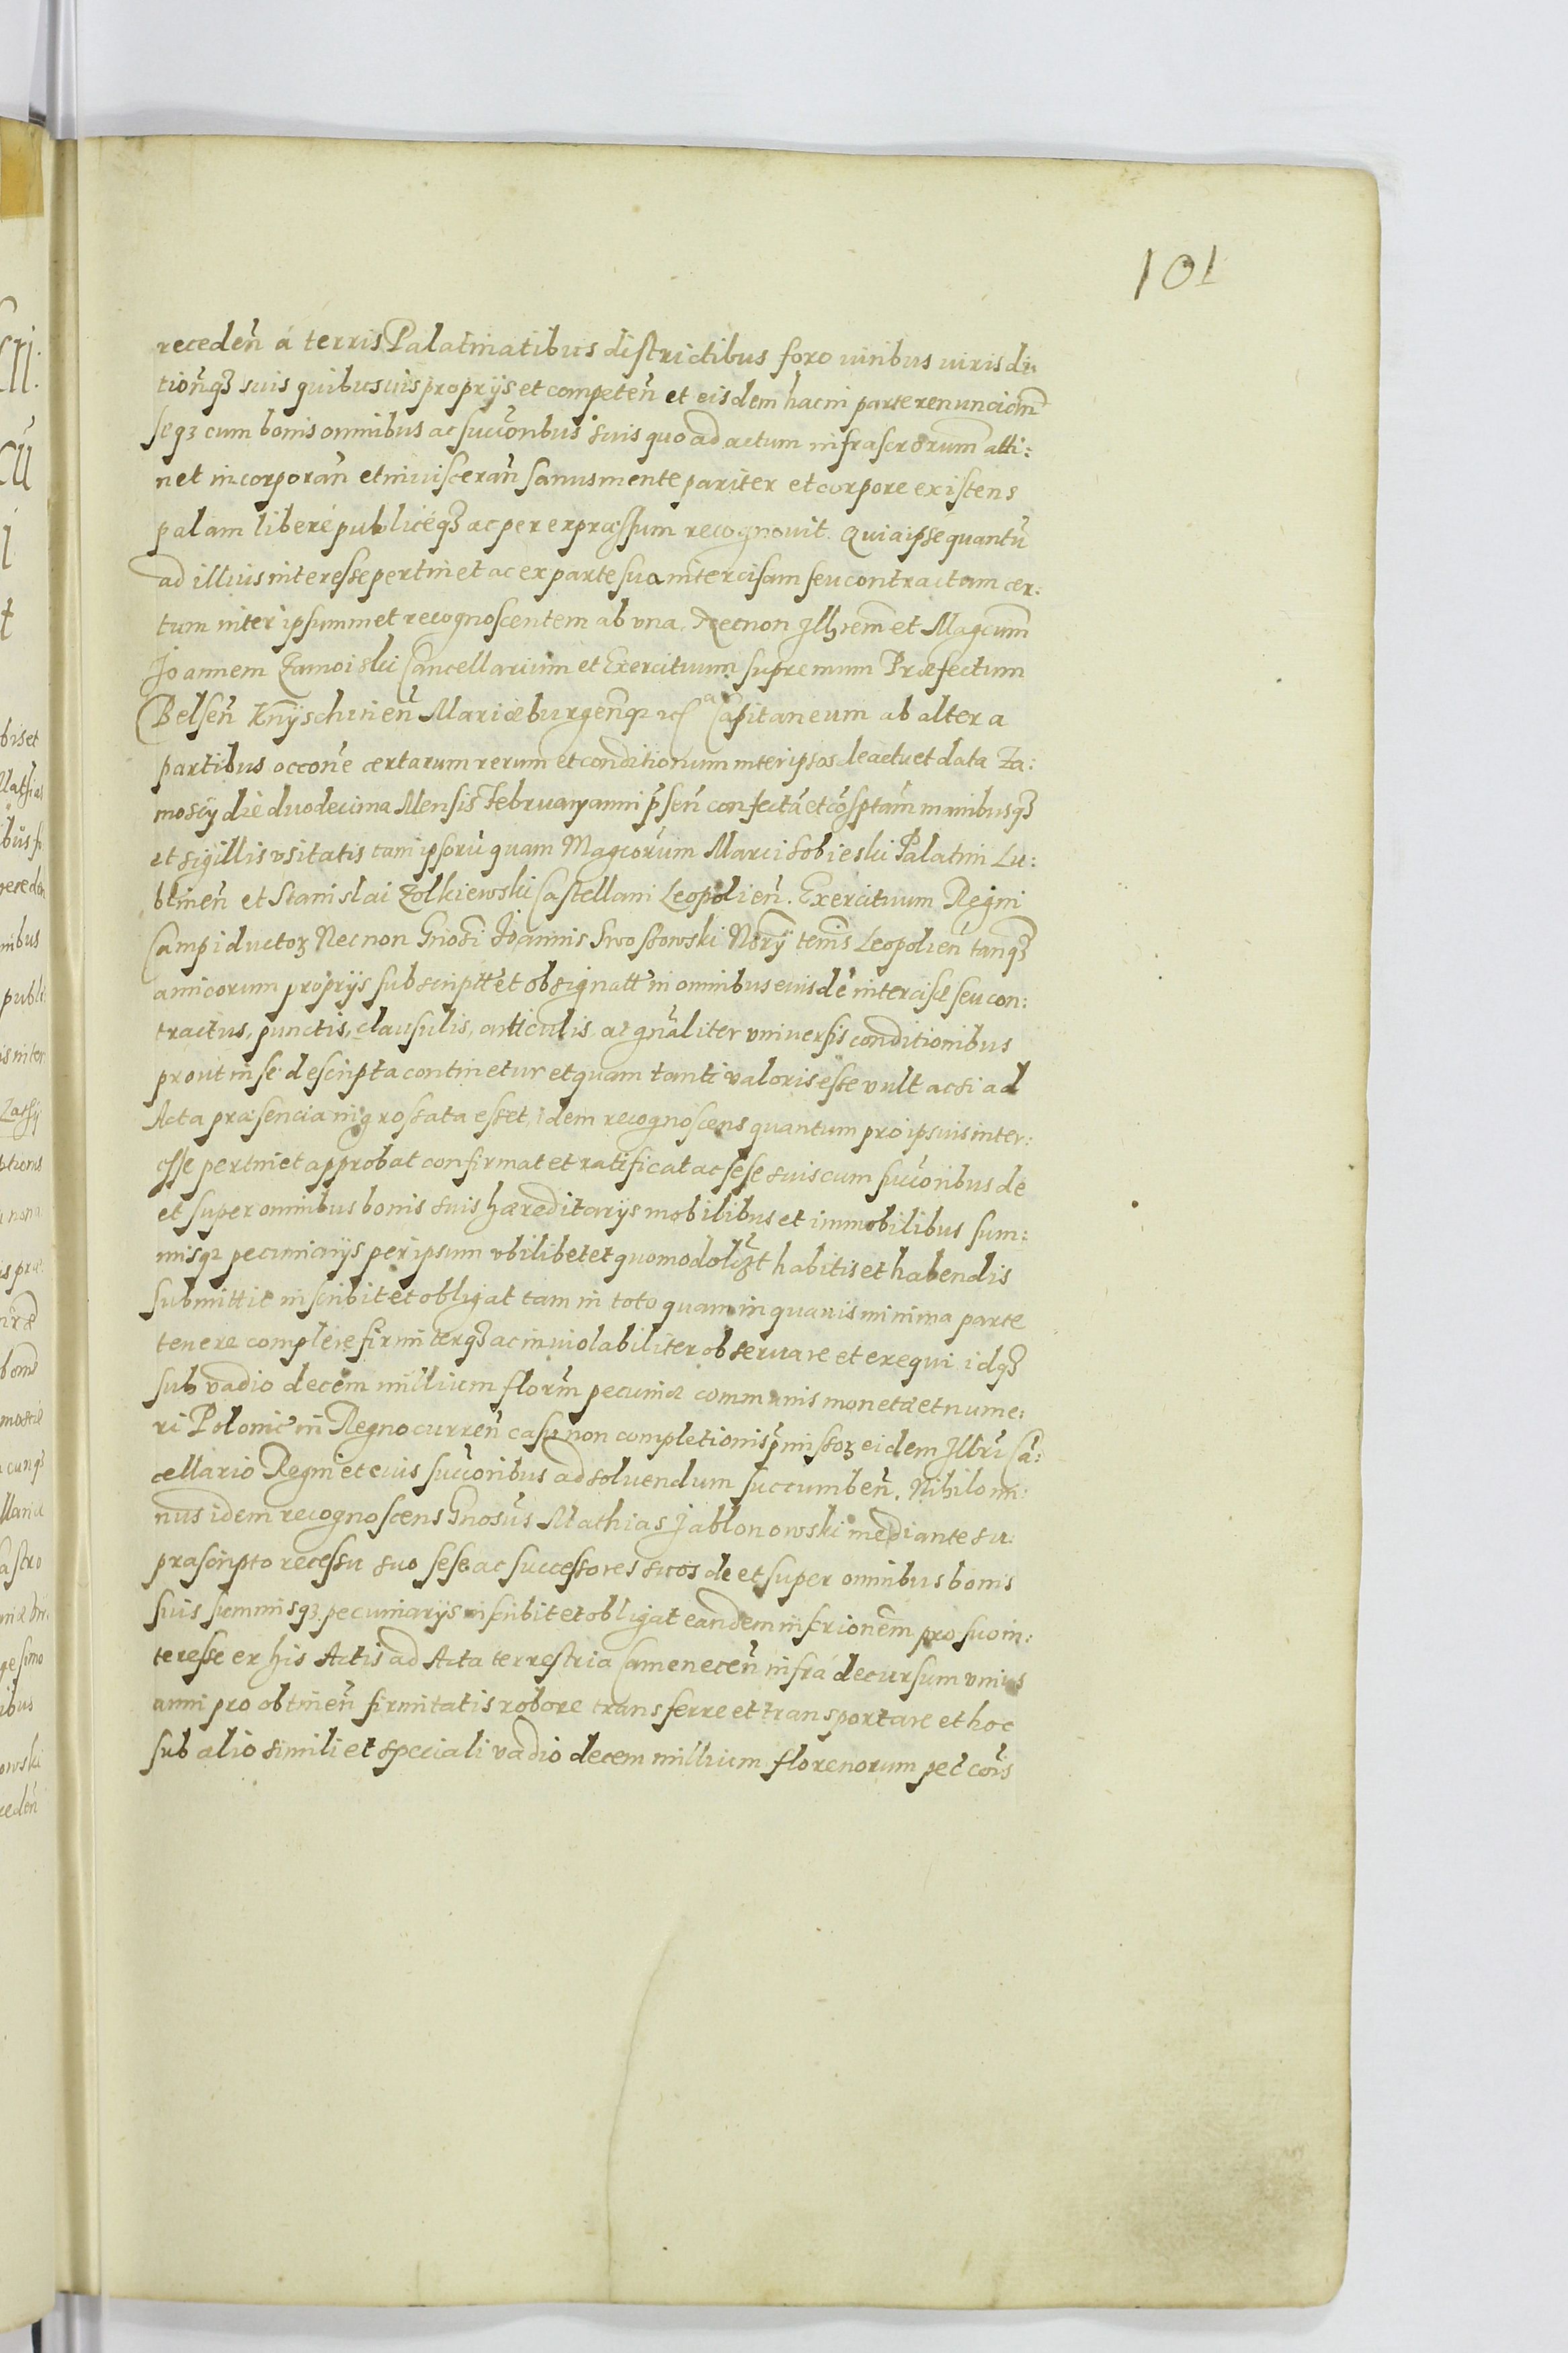 101
receden̄ á terris Palatinatibus districtibus foro iuribus iurisdic
tionq̄3 suis quibusuis proprijs et competen̄ et eisdem hac in parte renuncian̄
seq3 cum bonis omnibus ac succoribus suis quo ad actum infrascrorum atti:
net incorporan̄ et inuisceran̄ sanus mente pariter et corpore existens
palam liberé publiceq̄3 ac per expræssum recognouit. Quia ipse quantū
ad illius interesse pertinet ac ex parte sua intercisam seu contractum cer:
tum inter ipsummet recognoscentem ab vna. Necnon Illsrem et Magcum
Joannem Zamoiski Cancellarium et Exercituum supremum Præfectum
Belsen̄ Knÿschinen̄ Mariæburgenq3 etc Capitaneum ab altera
partibus occone certarum rerum et conditionum inter ipsos de actu et data Za:
moscij die duodecima Mensis Februarij anni p̄sen̄ confectā et cōsptam manibusq̄3
et sigillis vsitatis tam ipsorū quam Magcorum Marci Sobieski Palatini Lu:
blinen̄ et Stanislai Zolkiewski Castellani Leopolien̄. Exercituum Regni
Campiductor3 Necnon Gnosi Joannis Swosowski Nory terris Leopolien̄ tanq̄3
amicorum proprijs subscriptt et obsignatt in omnibus euisdē intercisæ seu con:
tractus, punctis, clausulis, articulis, ac gnāliter vniuersis conditionibus
prout in se descripta continetur et quam tanti valoris esse vult ac si ad
Acta præsencia nigrossata esset, idem recognoscens quantum pro ipsuis inter:
esse pertinet approbat confirmat et ratificat ac sese suis cum succoribus de
et super omnibus bonis suis hæreditarijs mobilibus et immobilibus sum:
misq3 pecuniarijs per ipsum vbilibet et quomodolz3t habitis et habendis
submittit inscribit et obligat tam in toto quam in quauis minima parte
tenere complere firmiterq̄3 ac inuiolabiliter obseruare et exequi idq̄3
sub vadio decem millium florm pecuniæ communis monetæ et nume:
ri Polonic̄ in Regno curren̄ casu non completionis p̄missor3 eidem Illri Cā:
cellario Regni et eius succoribus ad soluendum succumben̄. Nihilomi:
nus idem recognoscens Gnosus Mathias Jablonowski mediante su:
prascripto recessu suo sese ac successores suos de et super omnibus bonis
suis summisq3 pecuniarijs inscribit et obligat eandem inscrionem pro suo in:
teresse ex his Actis ad Acta terrestria Camenecen̄ infrá decursum vnius
anni pro obtinen̄ firmitatis robore transferre et transportare et hoc
sub alio simili et speciali vadio decem millium florenorum pec̄ cōis